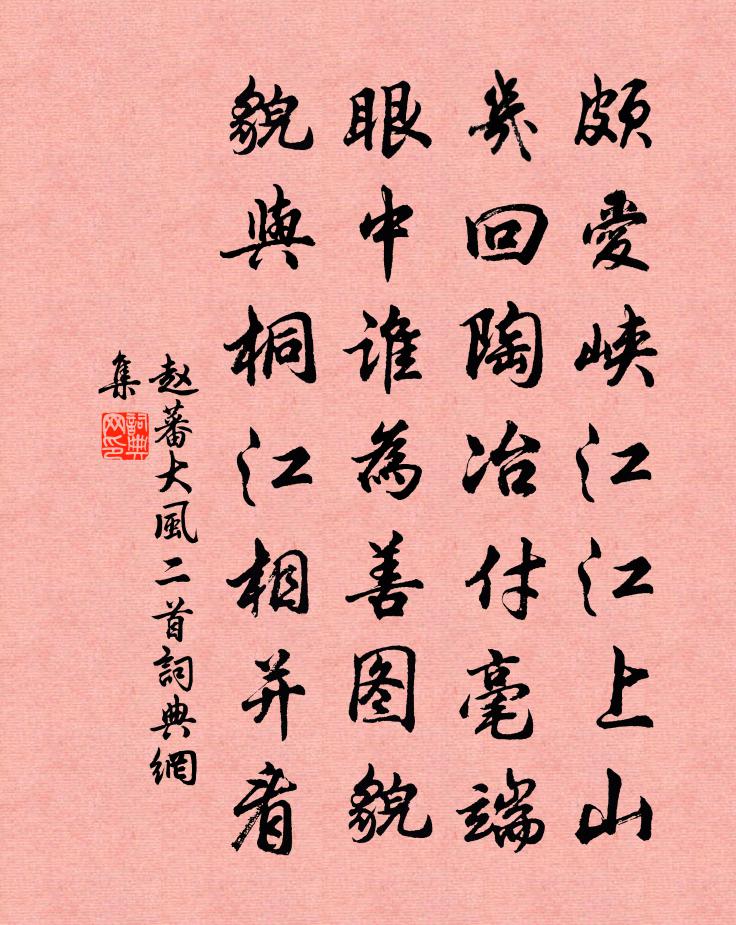 頗愛峡江江上山
幾回陶冶付毫端
眼中誰為善图貌
貌與桐江相并看
赵蕃大風二首詞典網
集
詞典
网印